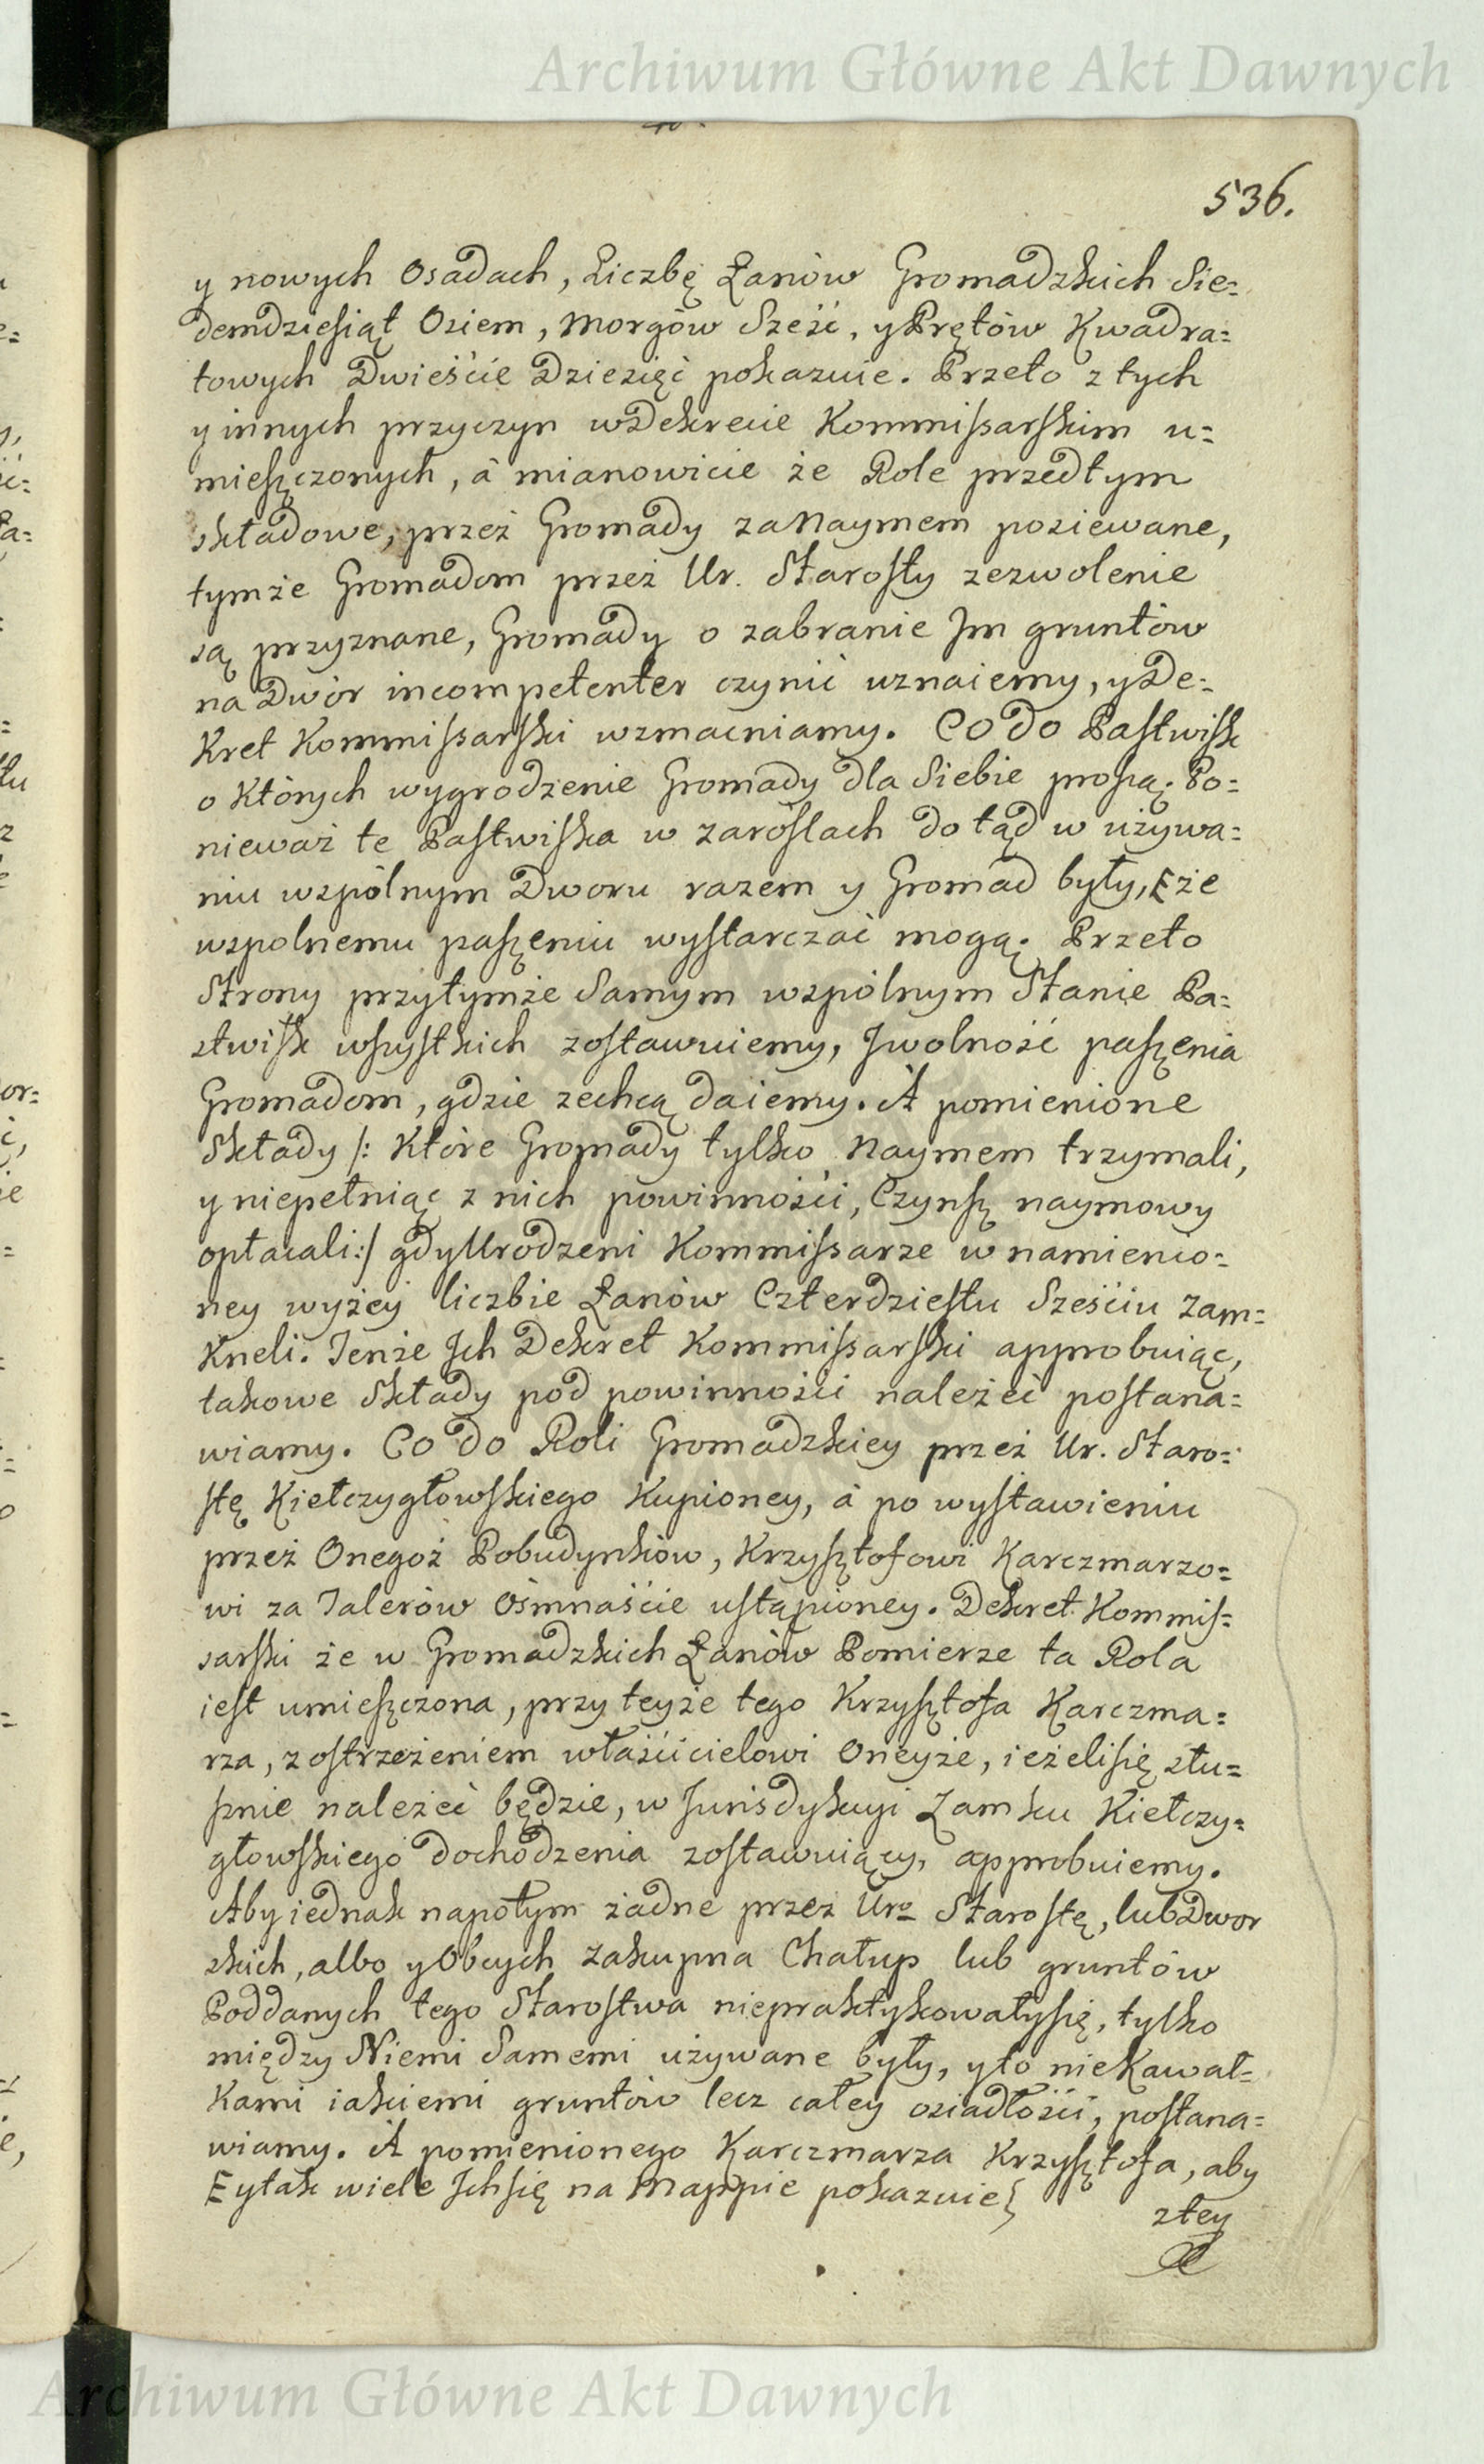 Archiwum Główne Akt Dawnych
536.
y nowych Osadach, Liczbę Łanów Gromadzkich Sie=
demdziesiąt Osiem, Morgów Sześć, y Prętów Kwadra=
towych Dwieście Dziesięć pokazuie. Przeto z tych
y innych przyczyn w Dekrecie Kommissarskim u=
mieszczonych, á mianowicie że Role przedtym
składowe, przez Gromady za Naymem posiewane,
tymże Gromadom przez Ur. Starosty zezwolenie
są przyznane, Gromady o zabranie Im gruntów
na Dwór incompetenter czynić uznaiemy, y De=
kret Kommissarski wzmacniamy. Co do Pastwisk
o których wygrodzenie Gromady dla Siebie proszą. Po=
nieważ te Pastwiska w zaroślach dotąd w używa=
niu wspólnym Dworu razem y Gromad były, E że
wspolnemu paszeniu wystarczać mogą. Przeto
Strony przytymże Samym wspólnym Stanie Pa=
stwisk wszystkich zostawuiemy, I wolność paszenia
Gromadom, gdzie zechcą daiemy. A pomienione
Składy /: które Gromady tylko Naymem trzymali,
y niepełniąc z nich powinności, Czynsz naymowy
opłacali :/ gdy Urodzeni Kommissarze w namienio=
ney wyżey liczbie Łanów Czterdziestu Sześciu zam=
kneli. Tenże Ich Dekret Kommissarski approbuiąc,
takowe Składy pod powinności należeć postana=
wiamy. Co do Roli Gromadzkiey przez Ur. Staro=
stę Kiełczygłowskiego kupioney, á po wystawieniu
przez Onegoż Pobudynków, Krzysztofowi Karczmarzo=
wi za Talerów Ośmnaście ustąpioney. Dekret Kommis=
sarski że w Gromadzkich Łanów Pomierze ta Rola
iest umieszczona, przy teyże tego Krzysztofa Karczma=
rza, z ostrzeżeniem właścicielowi Oneyże, ieżeli się słu=
sznie należeć będzie, w Jurisdykcyi Zamku Kiełczy=
głowskiego dochodzenia zostawuiący, approbuiemy.
Aby iednak napotym żadne przez Uro Starostę, lub Dwor
skich, albo y Obcych zakupna Chałup lub gruntów
Poddanych tego Starostwa niepraktykowały się, tylko
między Niemi Samemi używane były, y to nie Kawał=
kami iakiemi gruntów lecz całey osiadłości, postana=
wiamy. A pomienionego Karczmarza Krzysztofa, aby
E y tak wiele Ich się na Mappie pokazuie}
z tey
Archiwum Główne Akt Dawnych